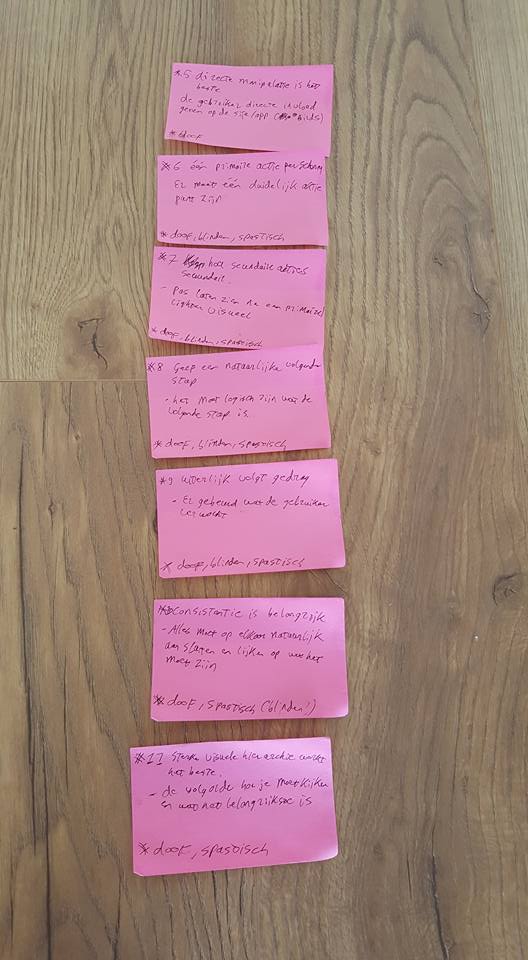 *5 directe manipulatie is het
beste
de gebruiker directe invloed
geven op de site/app
*doof
*6 één primaire actie per scherm
Er moet één duidelijk aktie
punt zijn
* doof, blinden, spastisch
*7 hou secundaire acties
secundair.
- pas laten zien na een primaire/
lichter visueel
*doof, blinden, spastisch
*8 Geef een natuurlijke volgende
stap
- het moet logisch zijn wat de
volgende stap is.
* doof, blinden, spastisch
*9 uiterlijk volgt gedrag
- Er gebeurd wat de gebruiker
verwacht
* doof, blinden, spastisch
consistentie is belangrijk
- Alles moet op elkaar natuurlijk
aan sluiten en lijken op wat het
moet zijn
* doof, spastisch (blinden!)
*11 Sterke visuele hierarchie werkt
het beste.
- de volgolde hoe je moet kijken
en wat het belangrijkste is
* doof, spastisch